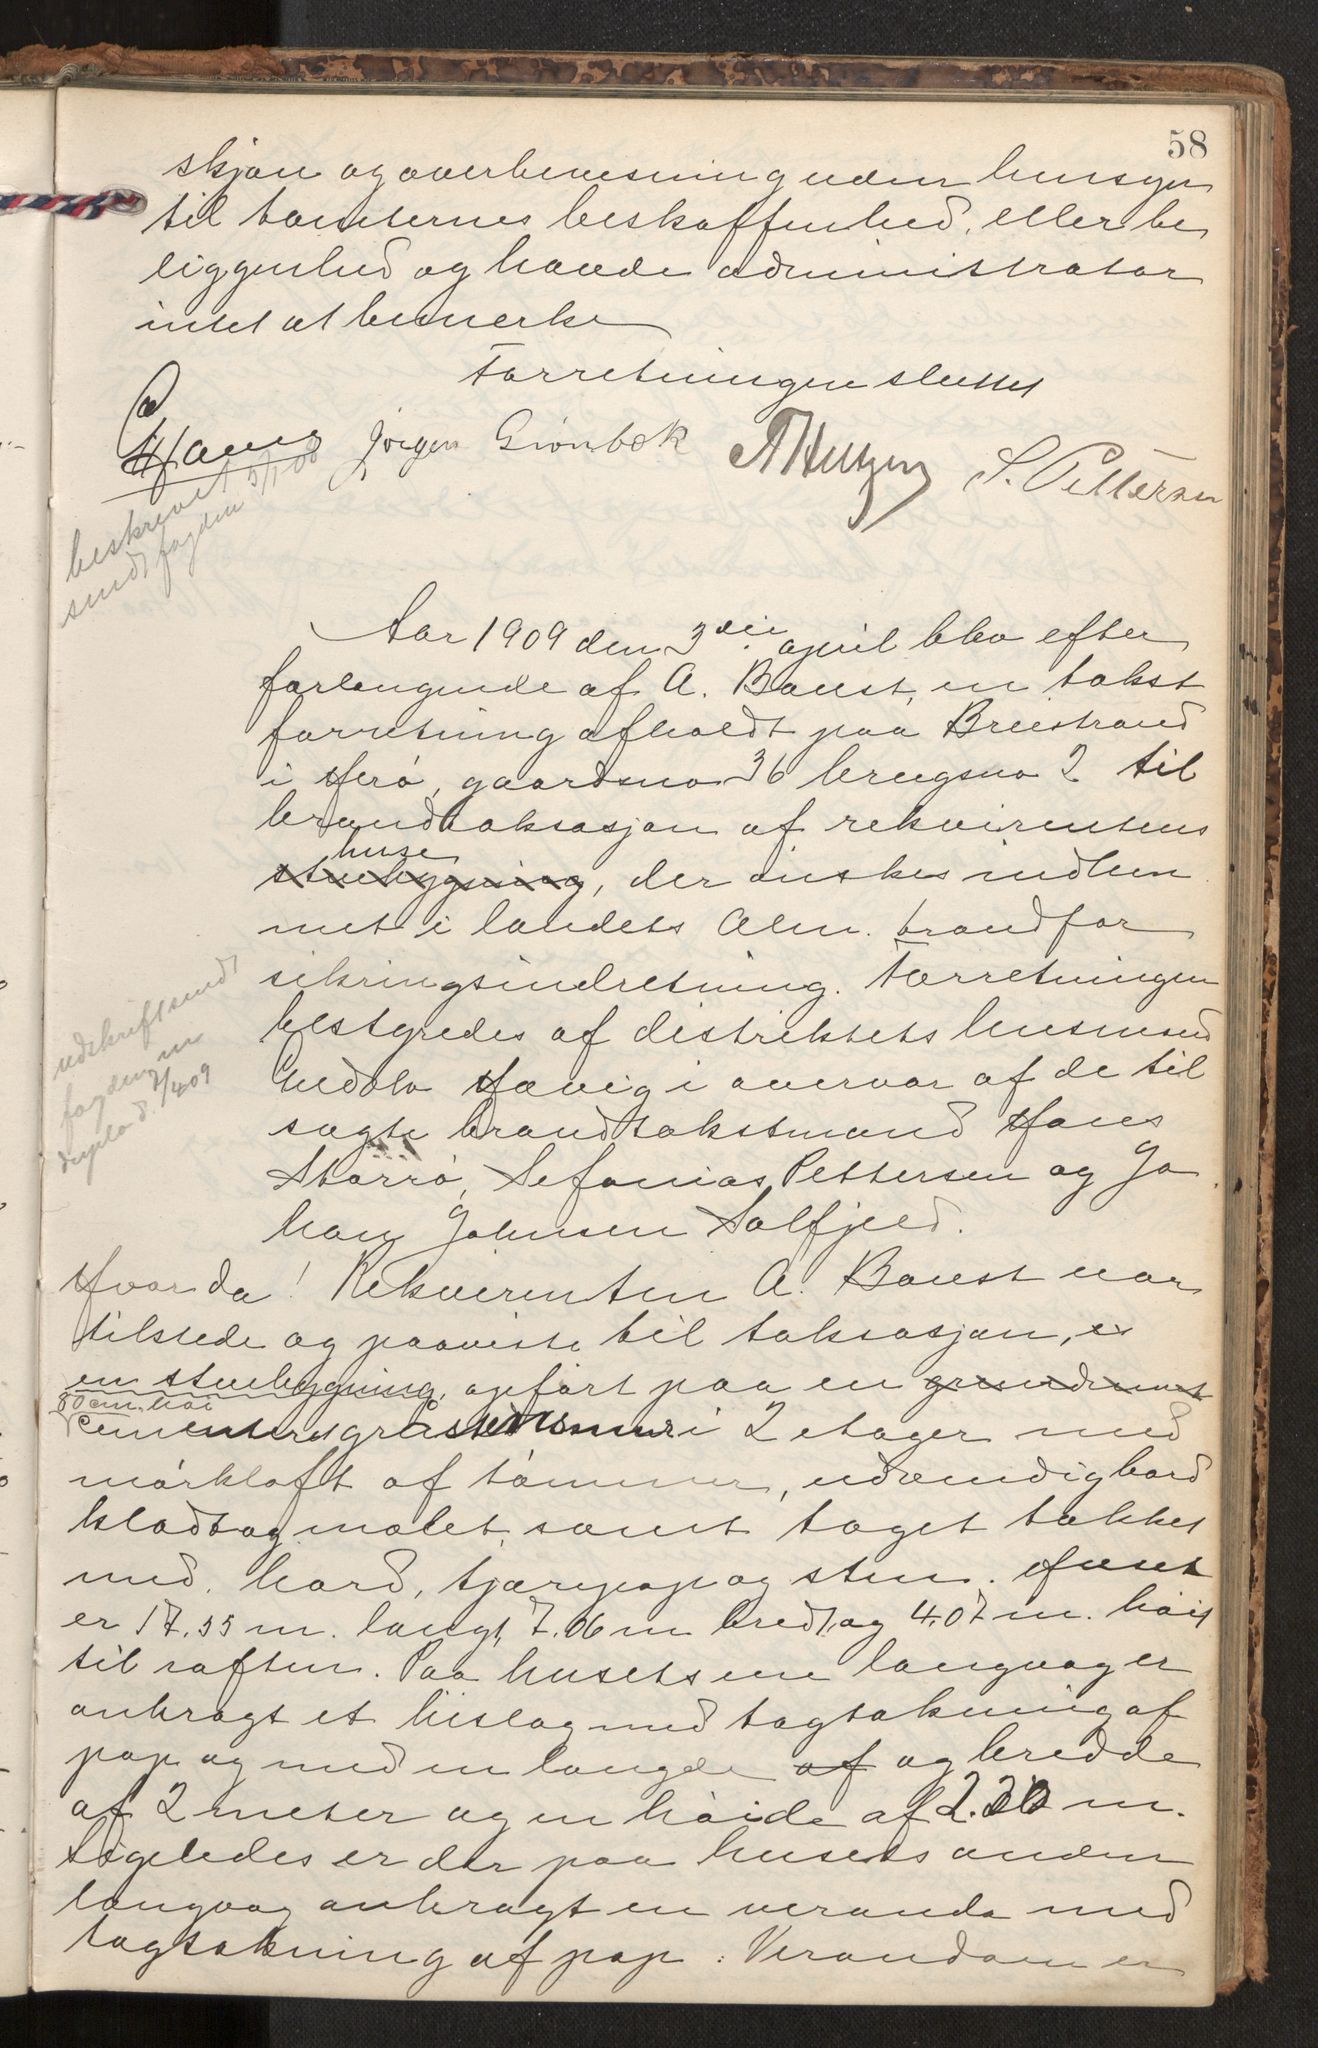 58
skjøn og overbevisning uden hensyn
til tomternes beskaffenhed, eller be
liggenhed og havde administrator
intet at bemerke
Forretningen sluttet
Jørgen Grønbæk S. Pettersen
beskrevet
sendt fogden
Aar 1909 den 3die april blev efter
forlangende af A. Baust, en takst
forretning afholdt paa Breistrand
i Herø, gaardsno 36 brugsno 2 til
brandtaksasjon af rekvirentens
huse
stuebygning, der ønskes indlem
met i landets Alm. brandfor
sikringsindretning. Forretningen
bestyredes af distriktets lensmend
Hævig i overvær af de til
sagte brandtakstmænd Hans
Storrø, Sefanias Pettersen og Jo
han Johnsen Salfjeld.
udskrift sendt
fogden
7/4 09
Hvorda! Rekvirenten A. Baust var
tilstede og paaviste til taksasjon, e
en stuebygning, opført paa en grundmur
80 cm. høi
cementeret graastensmur i 2 etager med
mørkloft af tømmer, udvendig bord
klædt og malet, samt taget tækket
med bord, tjærepap og sten. Huset
er 17.55 m. langt, 7.06 m bredt, og 4.07 m. høit
til raften. Paa husets ene langvæg er
anbragt et bislag med tagtækning af
pap og med en længde af og bredde
af 2 meter og en høide af m.
Ligeledes er der paa husets anden
langvæg anbragt en veranda med
tagtækning af pap. Verandaen er